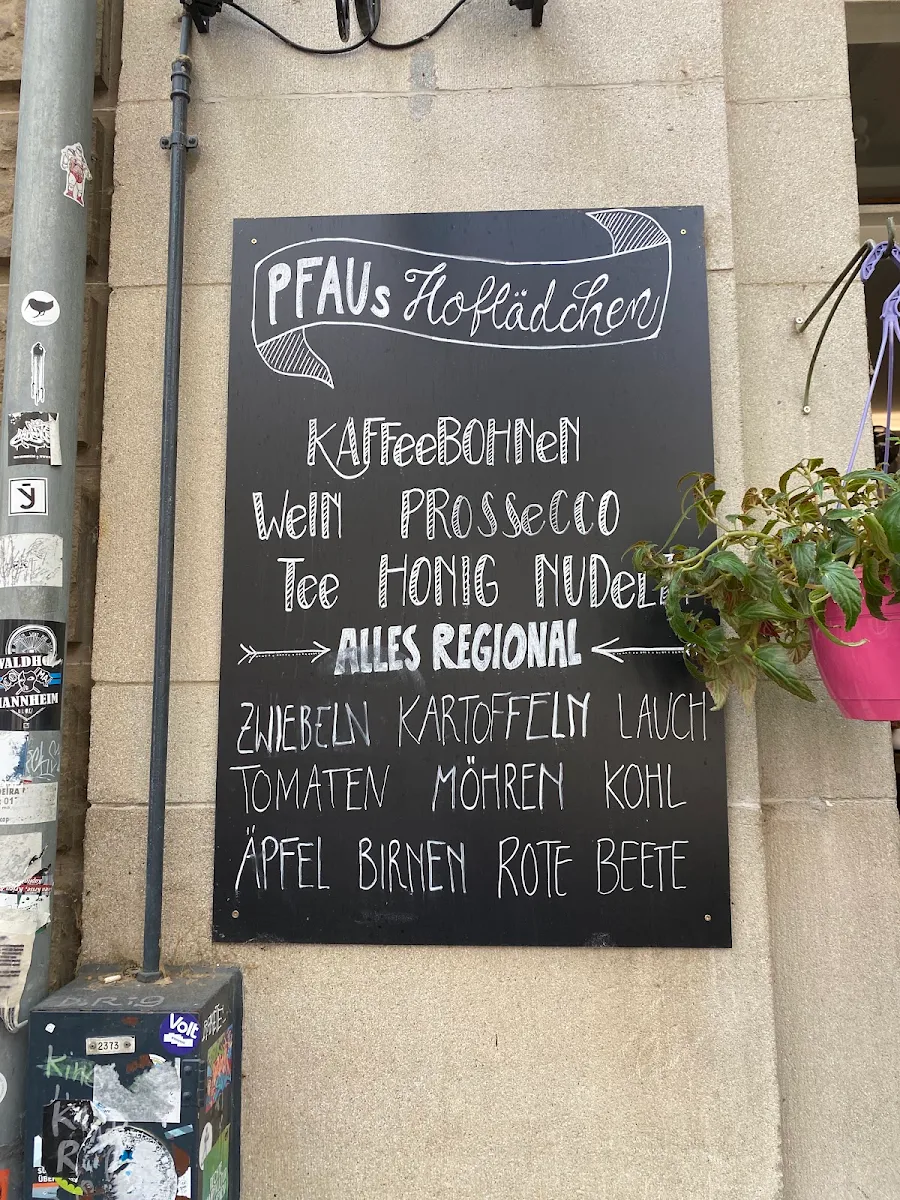 PFAUs Hoflädchen
KAFFeeBOHNeN
WeIN PROSSeCCO
Tee HONIG NUDeLN
ALLES REGIONAL
ZWIEBELN KARTOFFELN LAUCH
TOMATEN MÖHREN KOHL
ÄPFEL BIRNEN ROTE BEETE
WALDHO
MANNHEIM
2373
Volt